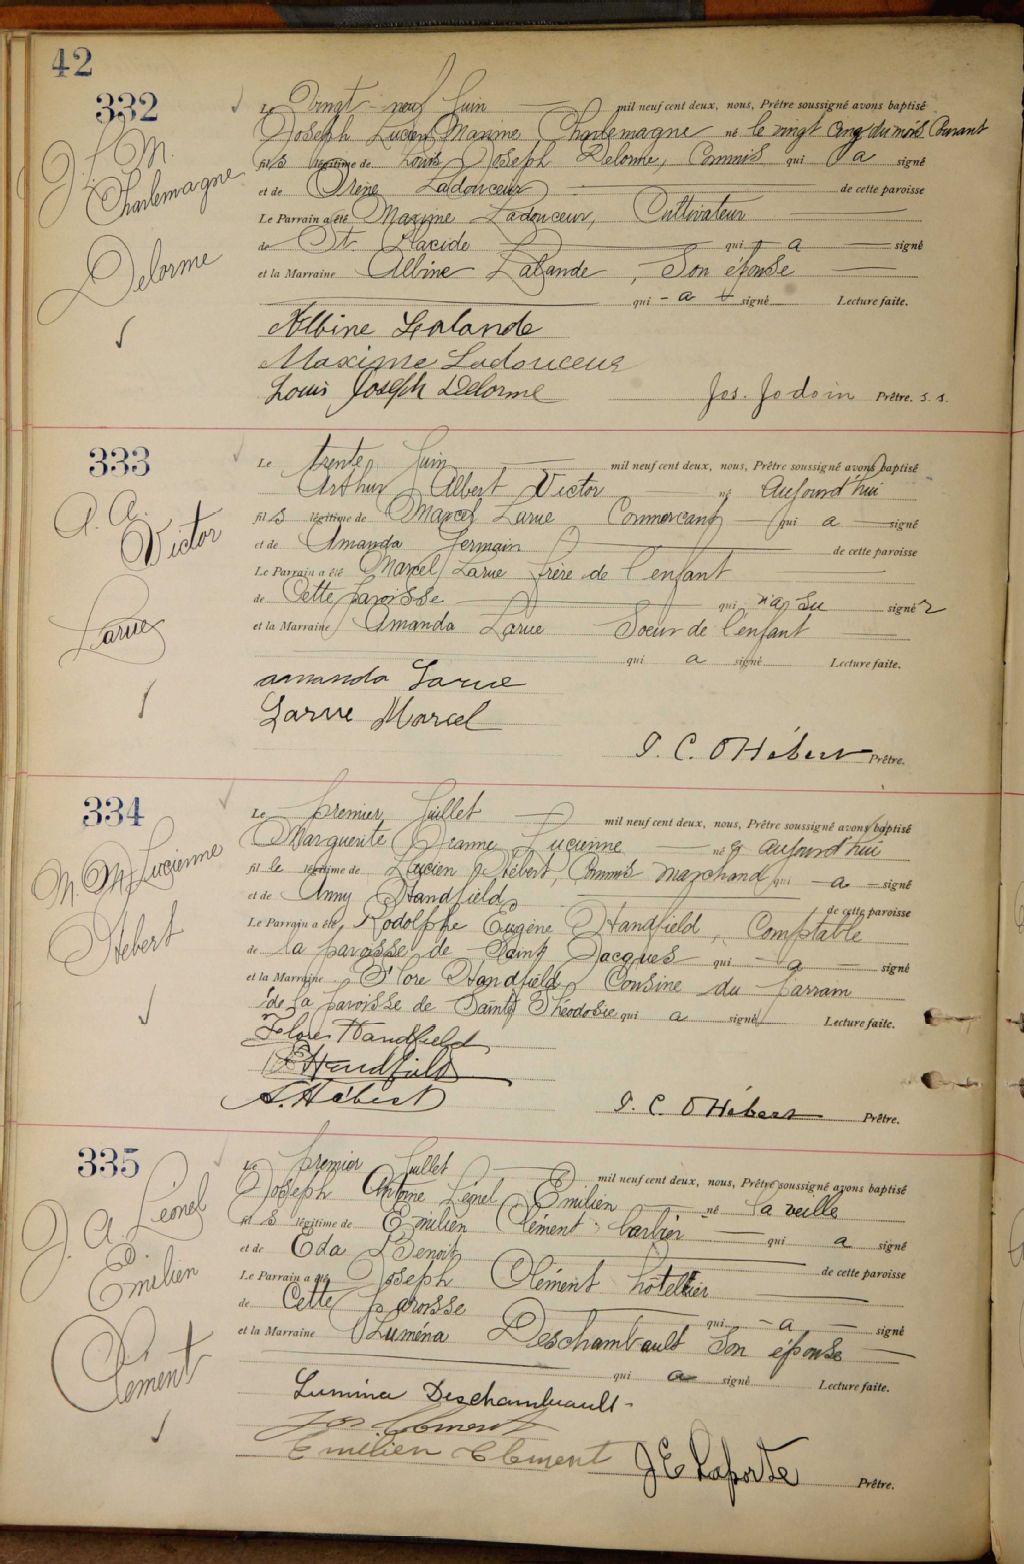 42
332
J. L. M.
Charlemagne
Delorme
Le Vingt-neuf Juin mil neuf cent deux, nous, Prêtre soussigné avons baptisé
Joseph Lucien Maxime Charlemagne né le vingt cinq du mois Courant
fils légitime de Louis Joseph Delorme, Commis qui a signé
et de Irène Ladouceur de cette paroisse
Le Parrain a été Maxime Ladouceur, Cultivateur
de St. Placide qui a signé
et la Marraine Albine Lalande, Son épouse
qui - a signé Lecture faite.
Albine Lalande
Maxime Ladouceur
Louis Joseph Delorme Jos. Jodoin Prêtre. s. s.
333
A. A.
Victor
Larue
Le trente Juin mil neuf cent deux, nous, Prêtre soussigné avons baptisé
Arthur Albert Victor né Aujourd'hui
fils légitime de Marcel Larue Commerçant qui a signé
et de Amanda Germain de cette paroisse
Le Parrain a été Marcel Larue frère de l'enfant
de Cette paroisse qui n'a su signer
et la Marraine Amanda Larue Soeur de l'enfant
qui a signé Lecture faite.
amanda Larue
Larue Marcel
J. C. O Hébert Prêtre.
334
M. M. Lucienne
Hébert
Le premier Juillet mil neuf cent deux, nous, Prêtre soussigné avons baptisé
Marguerite Jeanne Lucienne née aujourd'hui
fille légitime de Lucien Hébert, Commis marchand qui - a - signé
et de Anny Handfield de cette paroisse
Le Parrain a été, Rodolphe Eugène Handfield, Comptable
de la paroisse de Saint Jacques qui - a - signé
et la Marraine Flore Handfield, Cousine du parrain
de la paroisse de Sainte Théodosie qui a signé Lecture faite.
Flore Handfield
Handfield
L. Hébert J. C. O Hébert Prêtre.
335
J. A. Léonel
Emilien
Clément
Le premier Juillet mil neuf cent deux, nous, Prêtre soussigné avons baptisé
Joseph Antoine Léonel Emilien né la veille
fils légitime de Emilien Clément barbier qui a signé
et de Eda Benoit de cette paroisse
Le Parrain a été Joseph Clément hôtelier
de Cette paroisse qui - a - signé
et la Marraine Luména Deschambault Son épouse
qui a signé Lecture faite.
Lumina Deschambault
Jos. Clement
Emilien Clement J E Laporte Prêtre.